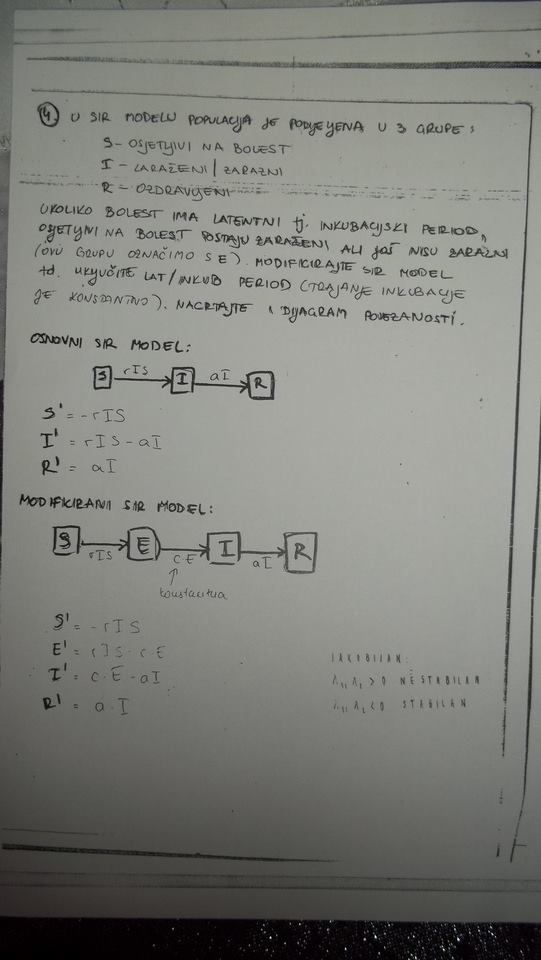 4. U SIR MODELU POPULACIJA JE PODIJELJENA U 3 GRUPE:
S - OSJETLJIVI NA BOLEST
I - ZARAŽENI / ZARAZNI
R - OZDRAVLJENI
UKOLIKO BOLEST IMA LATENTNI tj. INKUBACIJSKI PERIOD,
OSJETLJIVI NA BOLEST POSTAJU ZARAŽENI ALI JOŠ NISU ZARAZNI
(OVU GRUPU OZNAČIMO S E). MODIFICIRAJTE SIR MODEL
td. UKLJUČITE LAT/INKUB PERIOD (TRAJANJE INKUBACIJE
JE KONSTANTNO). NACRTAJTE I DIJAGRAM POVEZANOSTI.
OSNOVNI SIR MODEL:
S rIS I aI R
S' = -rIS
I' = rIS - aI
R' = aI
MODIFICIRANI SIR MODEL:
S rIS E cE I aI R
konstantna
S' = -rIS
E' = rIS - cE
I' = c·E - aI
R' = a·I
JAKOBIJAN:
λ₁, λ₂ > 0 NESTABILAN
λ₁, λ₂ < 0 STABILAN